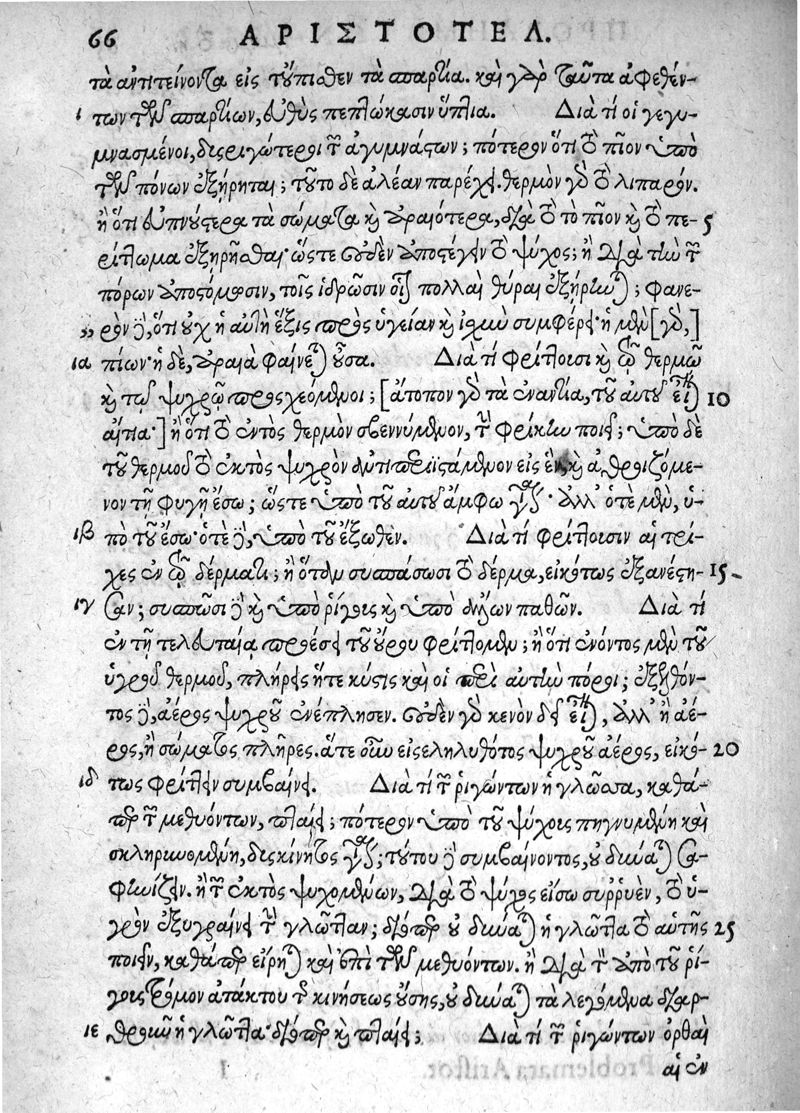 66 ΑΡΙΣΤΟΤΕΛ.
τὰ ἀντιτείνοντα εἰς τοὔπισθεν τὰ σπαρτία. καὶ γὰρ ταῦτα ἀφεθέν-
ι των τῶν σπαρτίων, εὐθὺς πεπτώκασιν ὕπτια. Διὰ τί οἱ γεγυ-
μνασμένοι, δυσριγώτεροι τῶν ἀγυμνάστων; πότερον ὅτι τὸ πῖον ὑπὸ
τῶν πόνων ἐξῄρηται; τοῦτο δὲ ἀλέαν παρέχει. θερμὸν γὰρ τὸ λιπαρόν.
ἢ ὅτι εὐπνούστερα τὰ σώματα καὶ ἀραιότερα, διὰ τὸ τὸ πῖον καὶ τὸ πε- 5
ρίττωμα ἐξῃρῆσθαι· ὥστε οὐδὲν ἀποστέγειν τὸ ψύχος; ἢ διὰ τὴν τῶν
πόρων ἀποστόμωσιν, τοῖς ἱδρῶσιν οἷον πολλαὶ θύραι ἐξῄρηνται; φανε-
„ ρὸν δὲ, ὅτι οὐχ ἡ αὐτὴ ἕξις πρὸς ὑγείαν καὶ ἰσχὺν συμφέρει· ἡ μὲν [γὰρ,]
ια πίων· ἡ δὲ, ἀραιὰ φαίνεται οὖσα. Διὰ τί φρίττουσι καὶ τῷ θερμῷ
καὶ τῷ ψυχρῷ προσχεόμενοι; [ἄτοπον γὰρ τὰ ἐναντία, τοῦ αὐτοῦ εἶναι 10
αἴτια·] ἢ ὅτι τὸ ἐντὸς θερμὸν σβεννύμενον, τὴν φρίκην ποιεῖ; ὑπὸ δὲ
τοῦ θερμοῦ τὸ ἐκτὸς ψυχρὸν ἀντιπεριϊστάμενον εἰς ἓν, καὶ ἀθροιζόμε-
νον τῇ φυγῇ ἔσω; ὥστε ὑπὸ τοῦ αὐτοῦ ἄμφω γίνεται· ἀλλ' ὁτὲ μὲν, ὑ-
ιβ πὸ τοῦ ἔσω· ὁτὲ δὲ, ὑπὸ τοῦ ἔξωθεν. Διὰ τί φρίττουσιν αἱ τρί-
χες ἐν τῷ δέρματι; ἢ ὅταν συσπάσωσι τὸ δέρμα, εἰκότως ἐξανέστη- 15
ιγ σαν; συσπῶσι δὲ καὶ ὑπὸ ῥίγους καὶ ὑπὸ ἄλλων παθῶν. Διὰ τί
ἐν τῇ τελευταίᾳ προέσει τοῦ οὔρου φρίττομεν; ἢ ὅτι ἐνόντος μὲν τοῦ
ὑγροῦ θερμοῦ, πλήρης ἥτε κύστις καὶ οἱ περὶ αὐτὴν πόροι; ἐξελθόν-
τος δὲ, ἀέρος ψυχροῦ ἐνέπλησεν. οὐδὲν γὰρ κενὸν δεῖ εἶναι, ἀλλ' ἢ ἀέ-
ρος, ἢ σώματος πλῆρες. ἅτε οὖν εἰσεληλυθότος ψυχροῦ ἀέρος, εἰκό- 20
ιδ τως φρίττειν συμβαίνει. Διὰ τί τῶν ῥιγώντων ἡ γλῶσσα, καθά-
περ τῶν μεθυόντων, πταίει; πότερον ὑπὸ τοῦ ψύχους πηγνυμένη καὶ
σκληρυνομένη, δυσκίνητος γίνεται; τούτου δὲ συμβαίνοντος, οὐ δύναται σα-
φηνίζειν. ἢ τῶν ἐκτὸς ψυχομένων, διὰ τὸ ψύχος εἴσω συρρυὲν, τὸ ὑ-
γρὸν ἐξυγραίνει τὴν γλῶτταν; διόπερ οὐ δύναται ἡ γλῶττα τὸ αὑτῆς 25
ποιεῖν, καθάπερ εἴρηται καὶ ἐπὶ τῶν μεθυόντων. ἢ διὰ τὸν ἀπὸ τοῦ ῥί-
γους τρόμον ἀτάκτου τῆς κινήσεως οὔσης, οὐ δύναται τὰ λεγόμενα διαρ-
ιε θροῦν ἡ γλῶττα· διόπερ καὶ πταίει; Διὰ τί τῶν ῥιγώντων ὀρθαὶ
αἱ ἐν